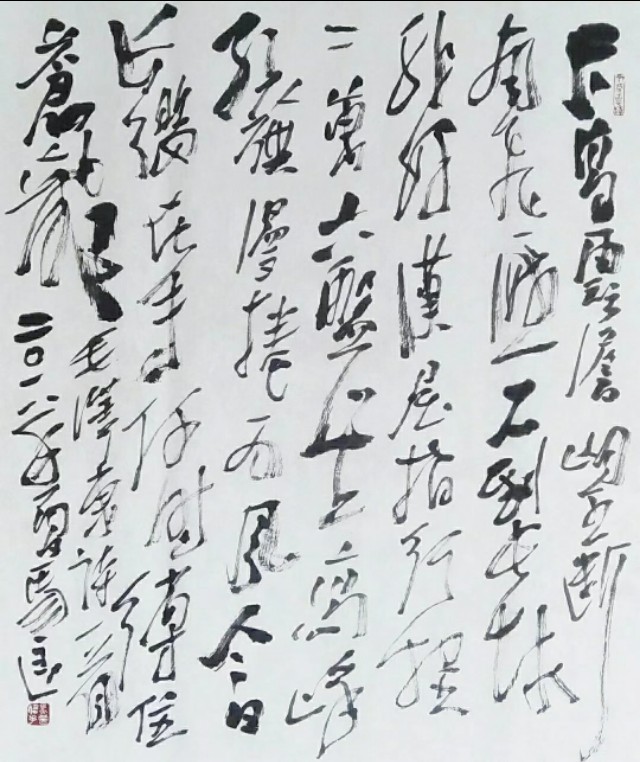 天高雲澹望斷
南飛雁不到長城
非好漢屈指行程
二萬六盤山上高峰
紅旗漫捲西風今日
長纓在手何時縛住
蒼龍
毛澤東詩一首
二〇一年夏馬